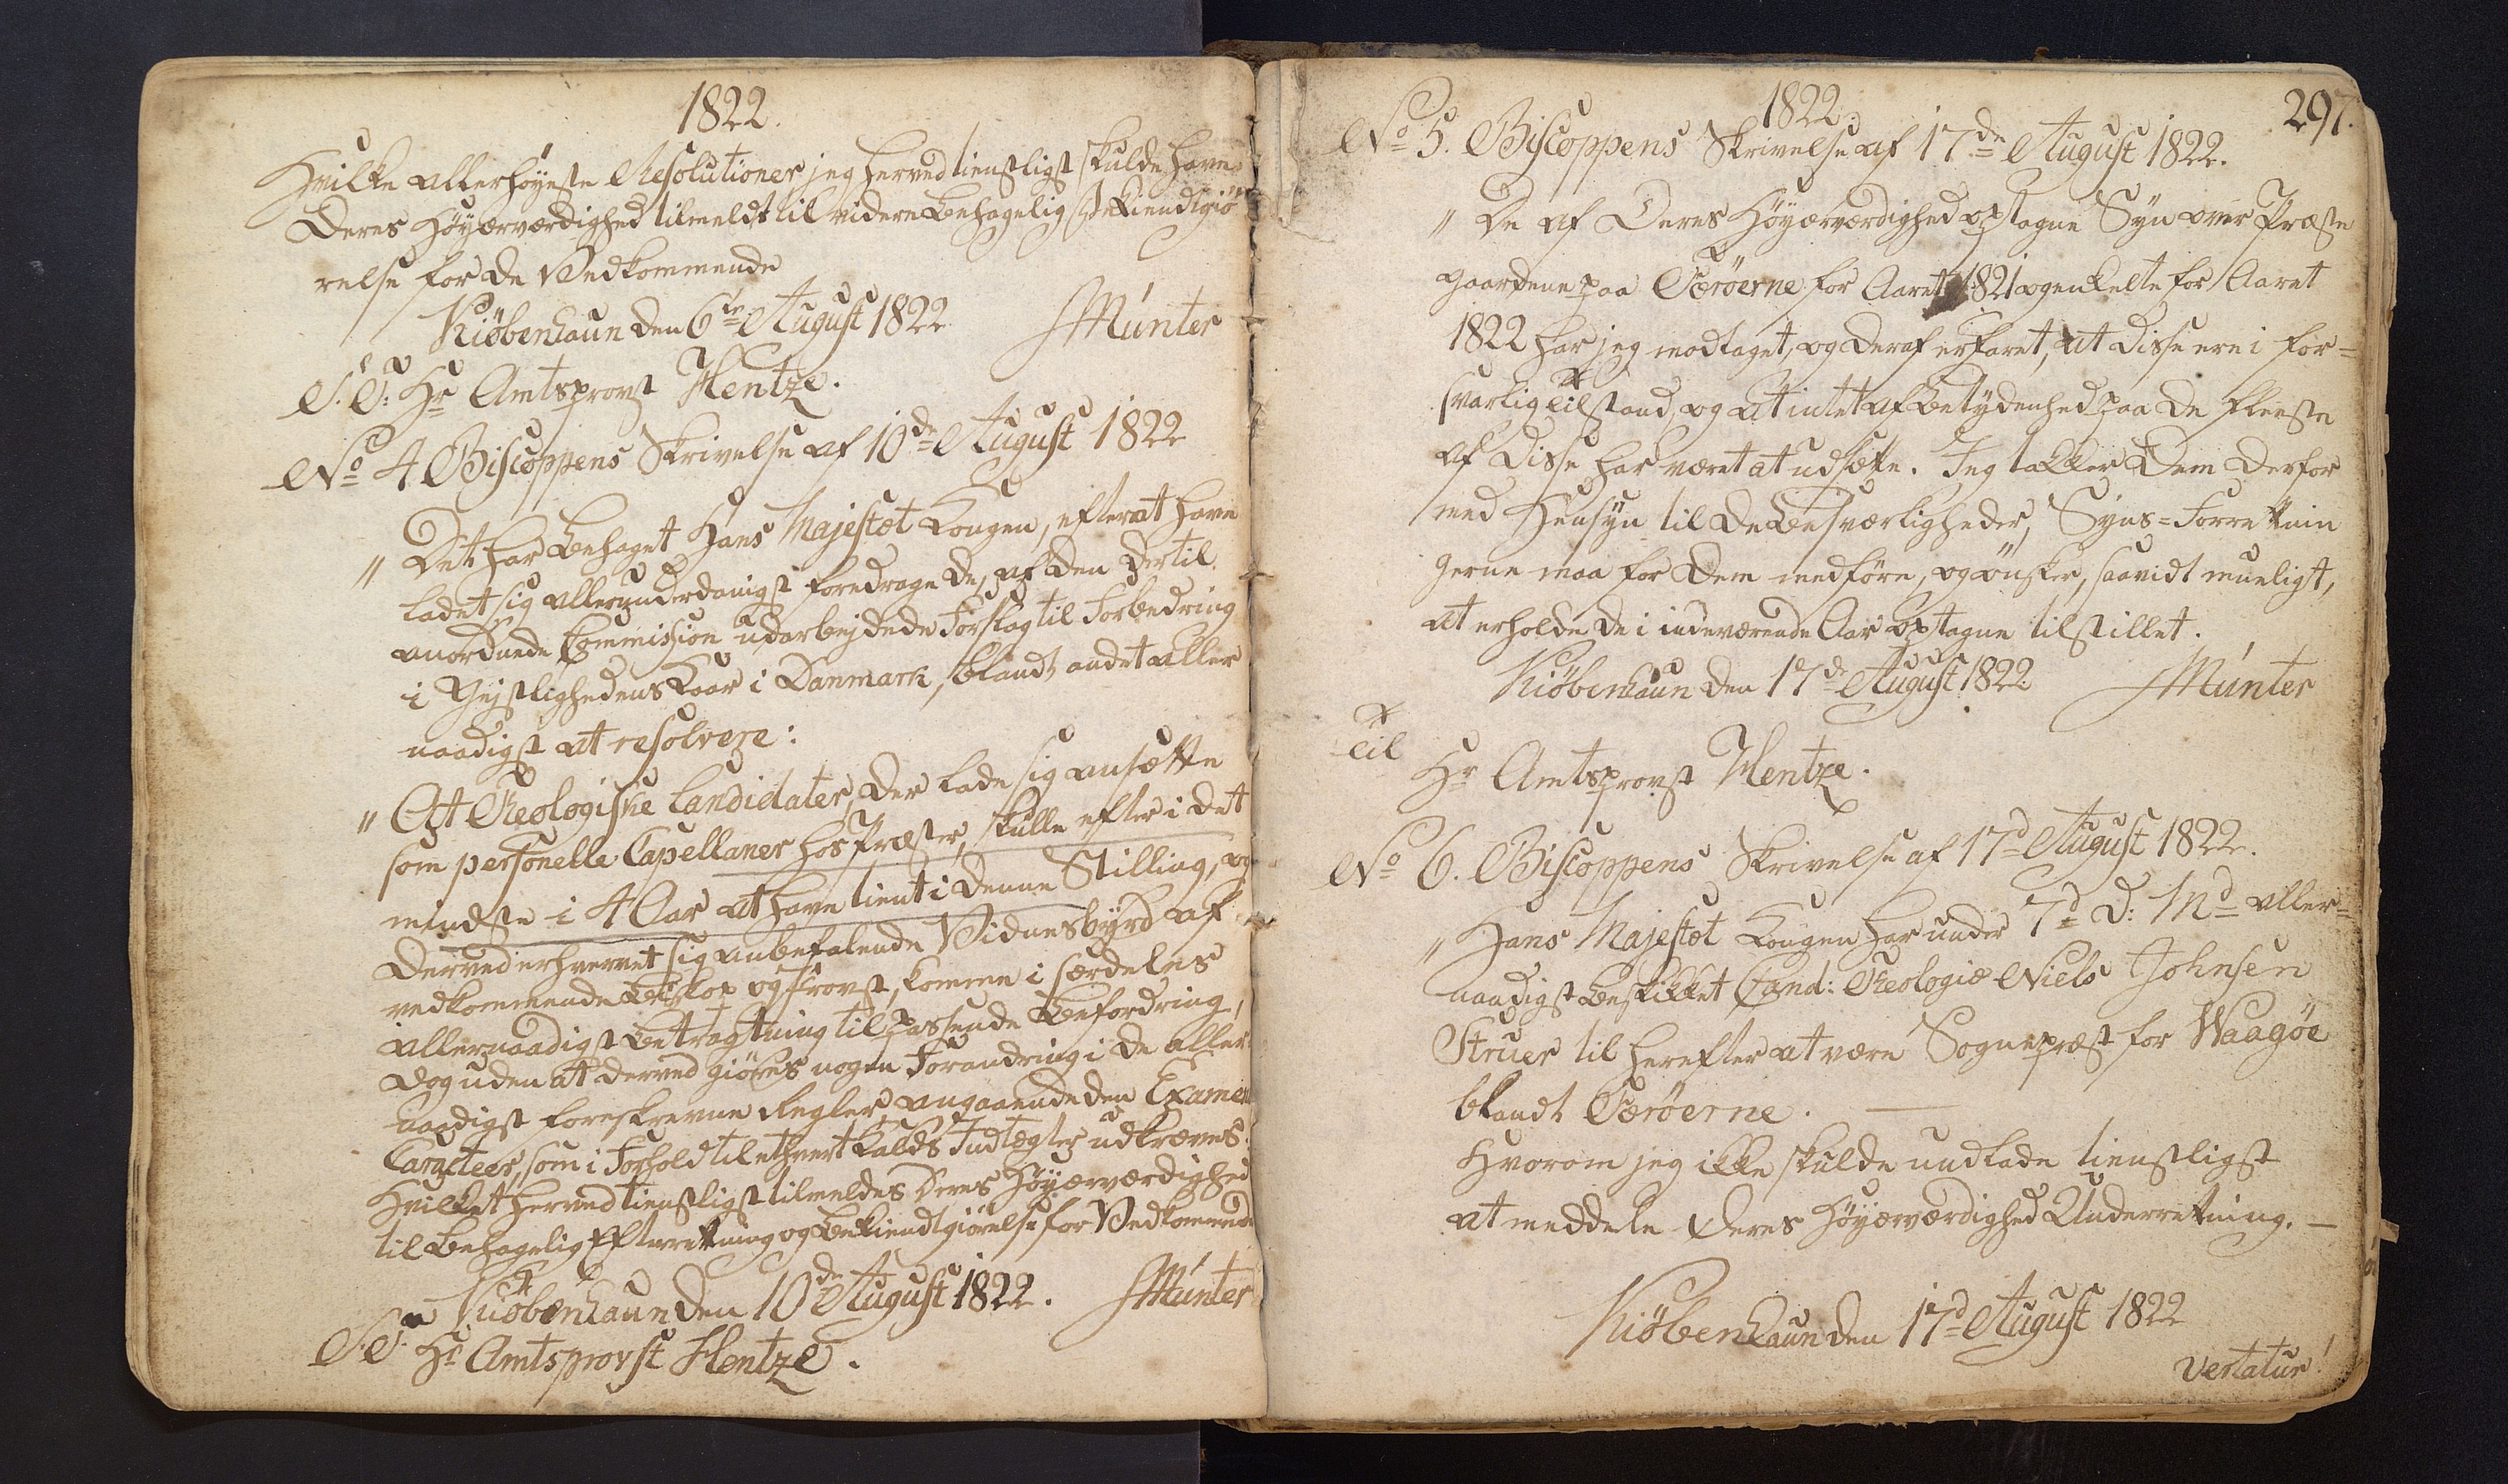 1822.
Hvilke allerhöyeste Resolutioner jeg herved tienstligst skulde have
Deres Höyærværdighed tilmeldt til videre behagelig Bekiendtgiö
relse for de Vedkommende
Kiöbenhavn den 6te August 1822 Münter
S. T. Hr Amtsprovst Hentze.
No 4 Biscoppens Skrivelse af 10de August 1822
" Det har behaget Hans Majestæt Kongen, efter at have
ladet sig allerunderdanigst foredrage de, af den dertil
anordnede Commission udarbejdede Forslag til Forbedring
i Gejstlighedens Kaar i Danmark, blandt andet aller
naadigst at resolvere:
" At Theologiske Candidater, der lade sig ansætte
som personelle Capellaner hos Præster, skulle efter i det
mindste i 4 Aar at have tient i denne Stilling, og
derved erhvervet sig anbefalende Vidnesbyrd af
vedkommende Biskop og Provst, komme i særdeles
allernaadigst Betragtning til passende Befordring,
dog uden at derved giöres nogen Forandring i de aller
naadigst foreskrevne Regler, angaaende den Examen
Caracteer, som i Forhold til ethvert Kalds Indtægter udkræves.
Hvilket herved tienstligst tilmeldes Deres Höyærværdighed
til behagelig Efterretning og Bekiendtgiörelse for Vedkommende
Kiöbenhavn den 10de August 1822. Münter
S. T. Hr Amtsprovst Hentze.
1822. 297.
No 5. Biscoppens Skrivelse af 17de August 1822.
" De af Deres Höyærværdighed optagne Syn over Præste
gaardene paa Færöerne for Aaret 1821 og enkelte for Aaret
1822 har jeg modtaget, og deraf erfaret, at disse ere i for=
svarlig Tilstand, og at intet af Betydenhed paa de fleeste
af disse har været at udsætte. Jeg takker Dem derfor
med Hensyn til de Besværligheder, Syns=Forretnin
gerne maa for Dem medföre, og önsker, saavidt mueligt,
at erholde de i indeværende Aar optagne tilstillet.
Kiöbenhavn den 17de August 1822 Münter
Til
Hr Amtsprovst Hentze.
No 6. Biscoppens Skrivelse af 17d August 1822.
" Hans Majestæt Kongen har under 7d d: Md aller=
naadigst beskikket Cand: Theologiæ Niels Johnsen
Struer til herefter at være Sognepræst for Waagöe
blandt Færöerne. —
Hvorom jeg ikke skulde undlade tienstligst
at meddele Deres Höyærværdighed Underretning. —
Kiöbenhavn den 17d August 1822
vertatur!